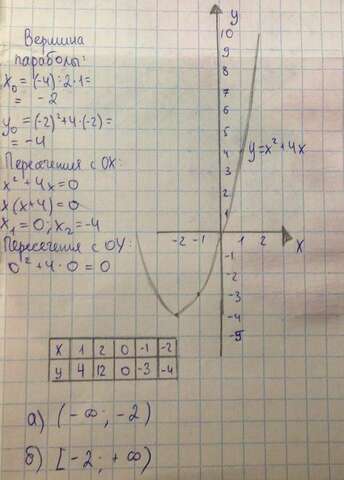 Вершина
параболы:
x₀ = (-4):2·1=
= -2
y₀ = (-2)²+4·(-2)=
= -4
Пересечения с OX:
x²+4x=0
x(x+4)=0
x₁=0; x₂=-4
Пересечения с OY:
0²+4·0=0
y
10
9
8
7
6
5
4
3
2
1
y=x²+4x
-2 -1 1 2 x
-1
-2
-3
-4
-5
x 1 2 0 -1 -2
y 4 12 0 -3 -4
а) (-∞; -2)
б) [-2; +∞)